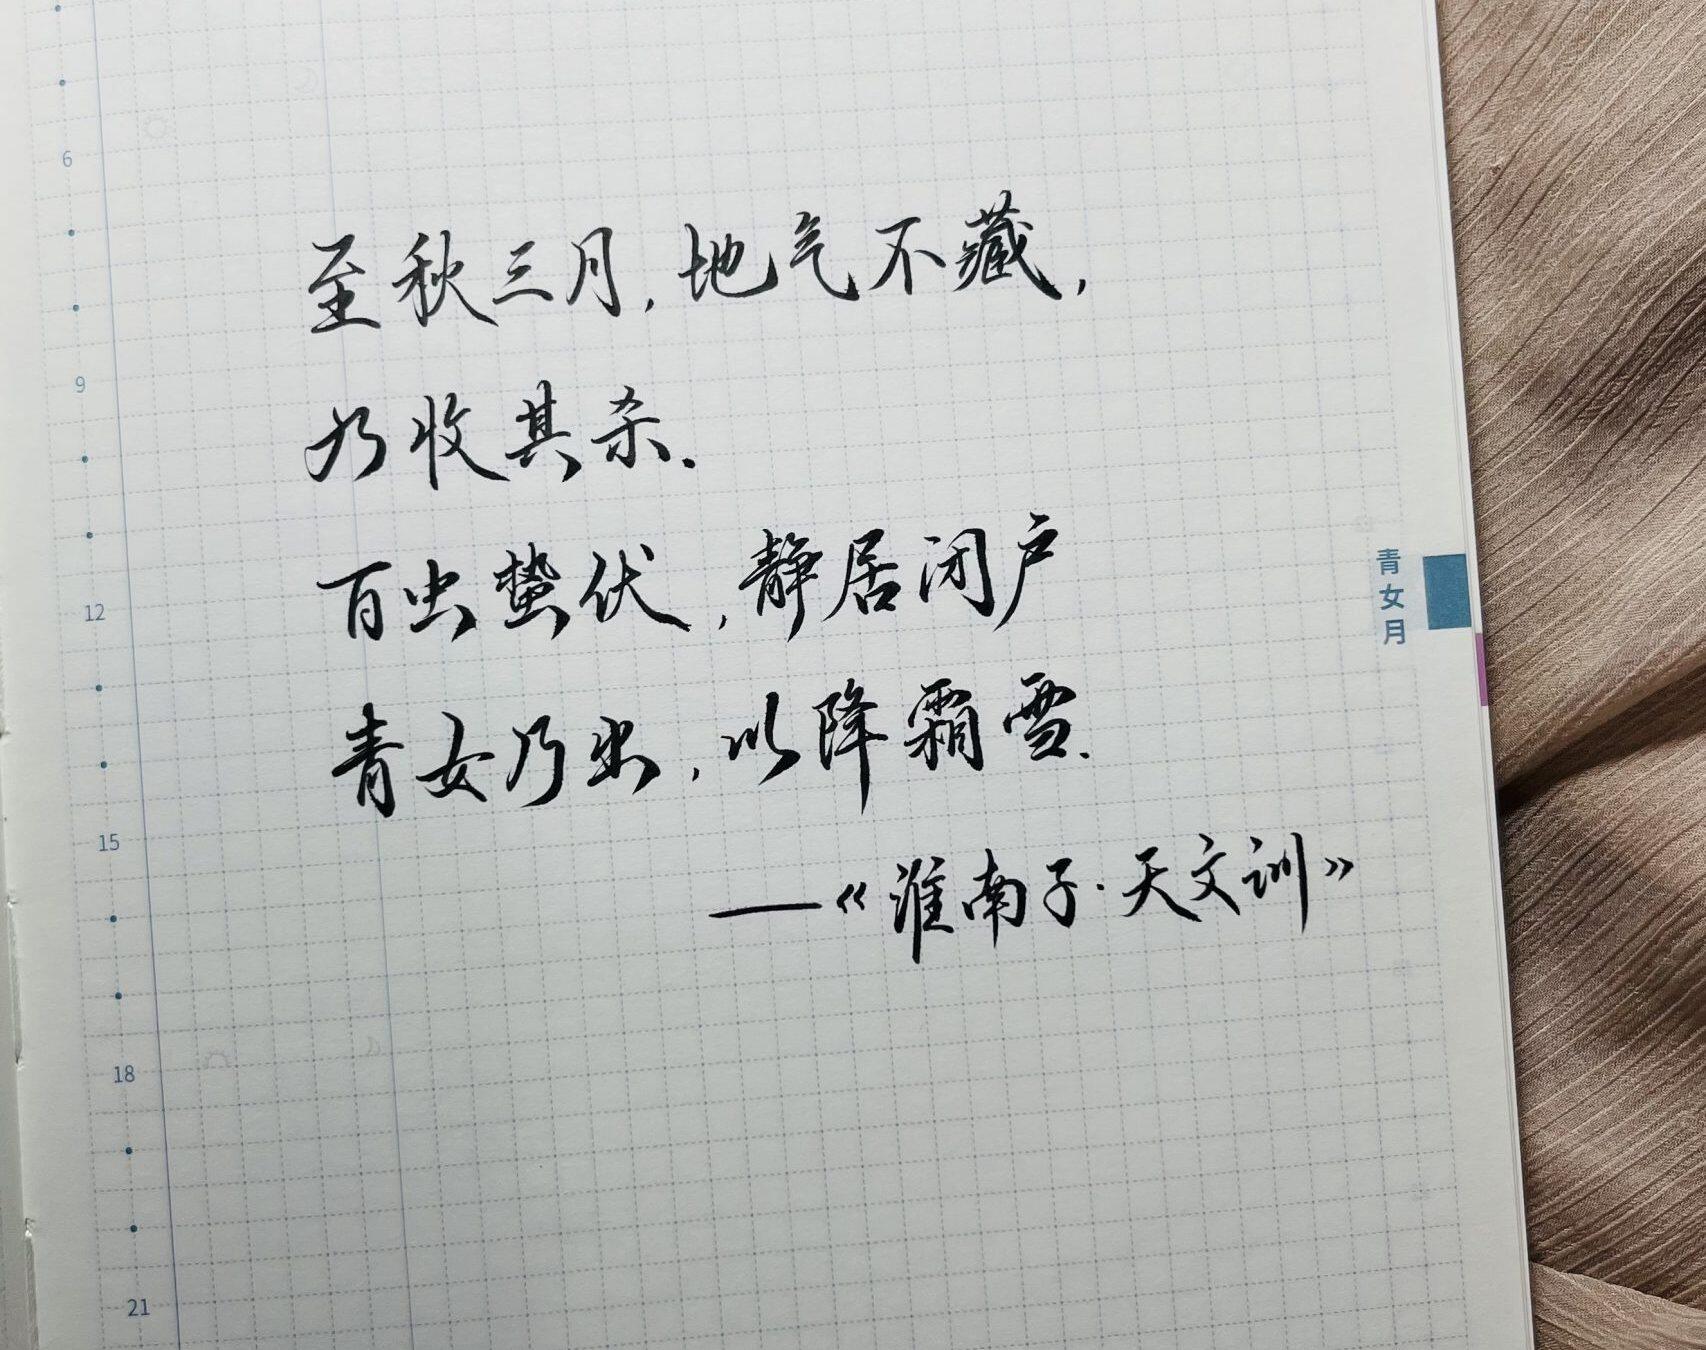 至秋三月,地气不藏,
乃收其杀.
百虫蛰伏,静居闭户
青女乃出,以降霜雪.
——《淮南子·天文训》
青女月
6
9
12
15
18
21